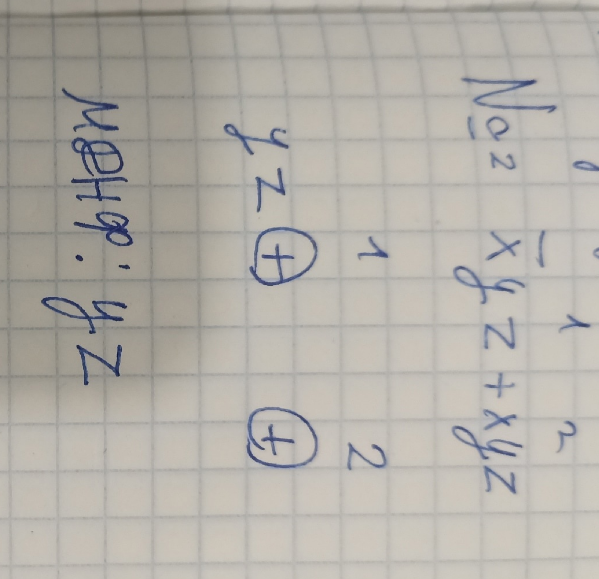 1 2
№2 x̅yz+xyz
1 2
yz ⊕ ⊕
МДНФ: yz